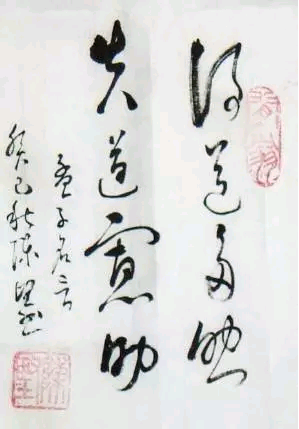 得道多助
失道寡助
孟子名言
癸巳秋陈